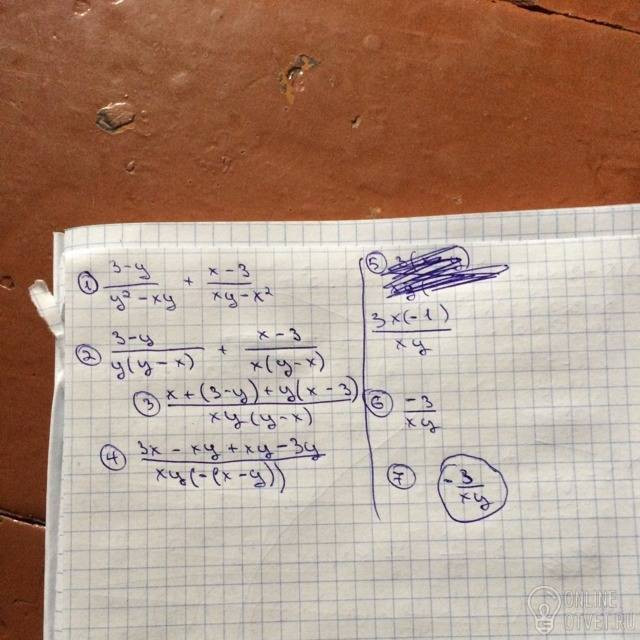 ① (3-y)/(y² - xy) + (x-3)/(xy-x²)
② (3-y)/(y(y-x)) + (x-3)/(x(y-x))
③ (x+(3-y)+y(x-3))/(xy(y-x))
④ (3x-xy+xy-3y)/(xy(-(x-y)))
⑤
(3x(-1))/(xy)
⑥ (-3)/(xy)
⑦ -3/(xy)
ONLINE
OTVET.RU